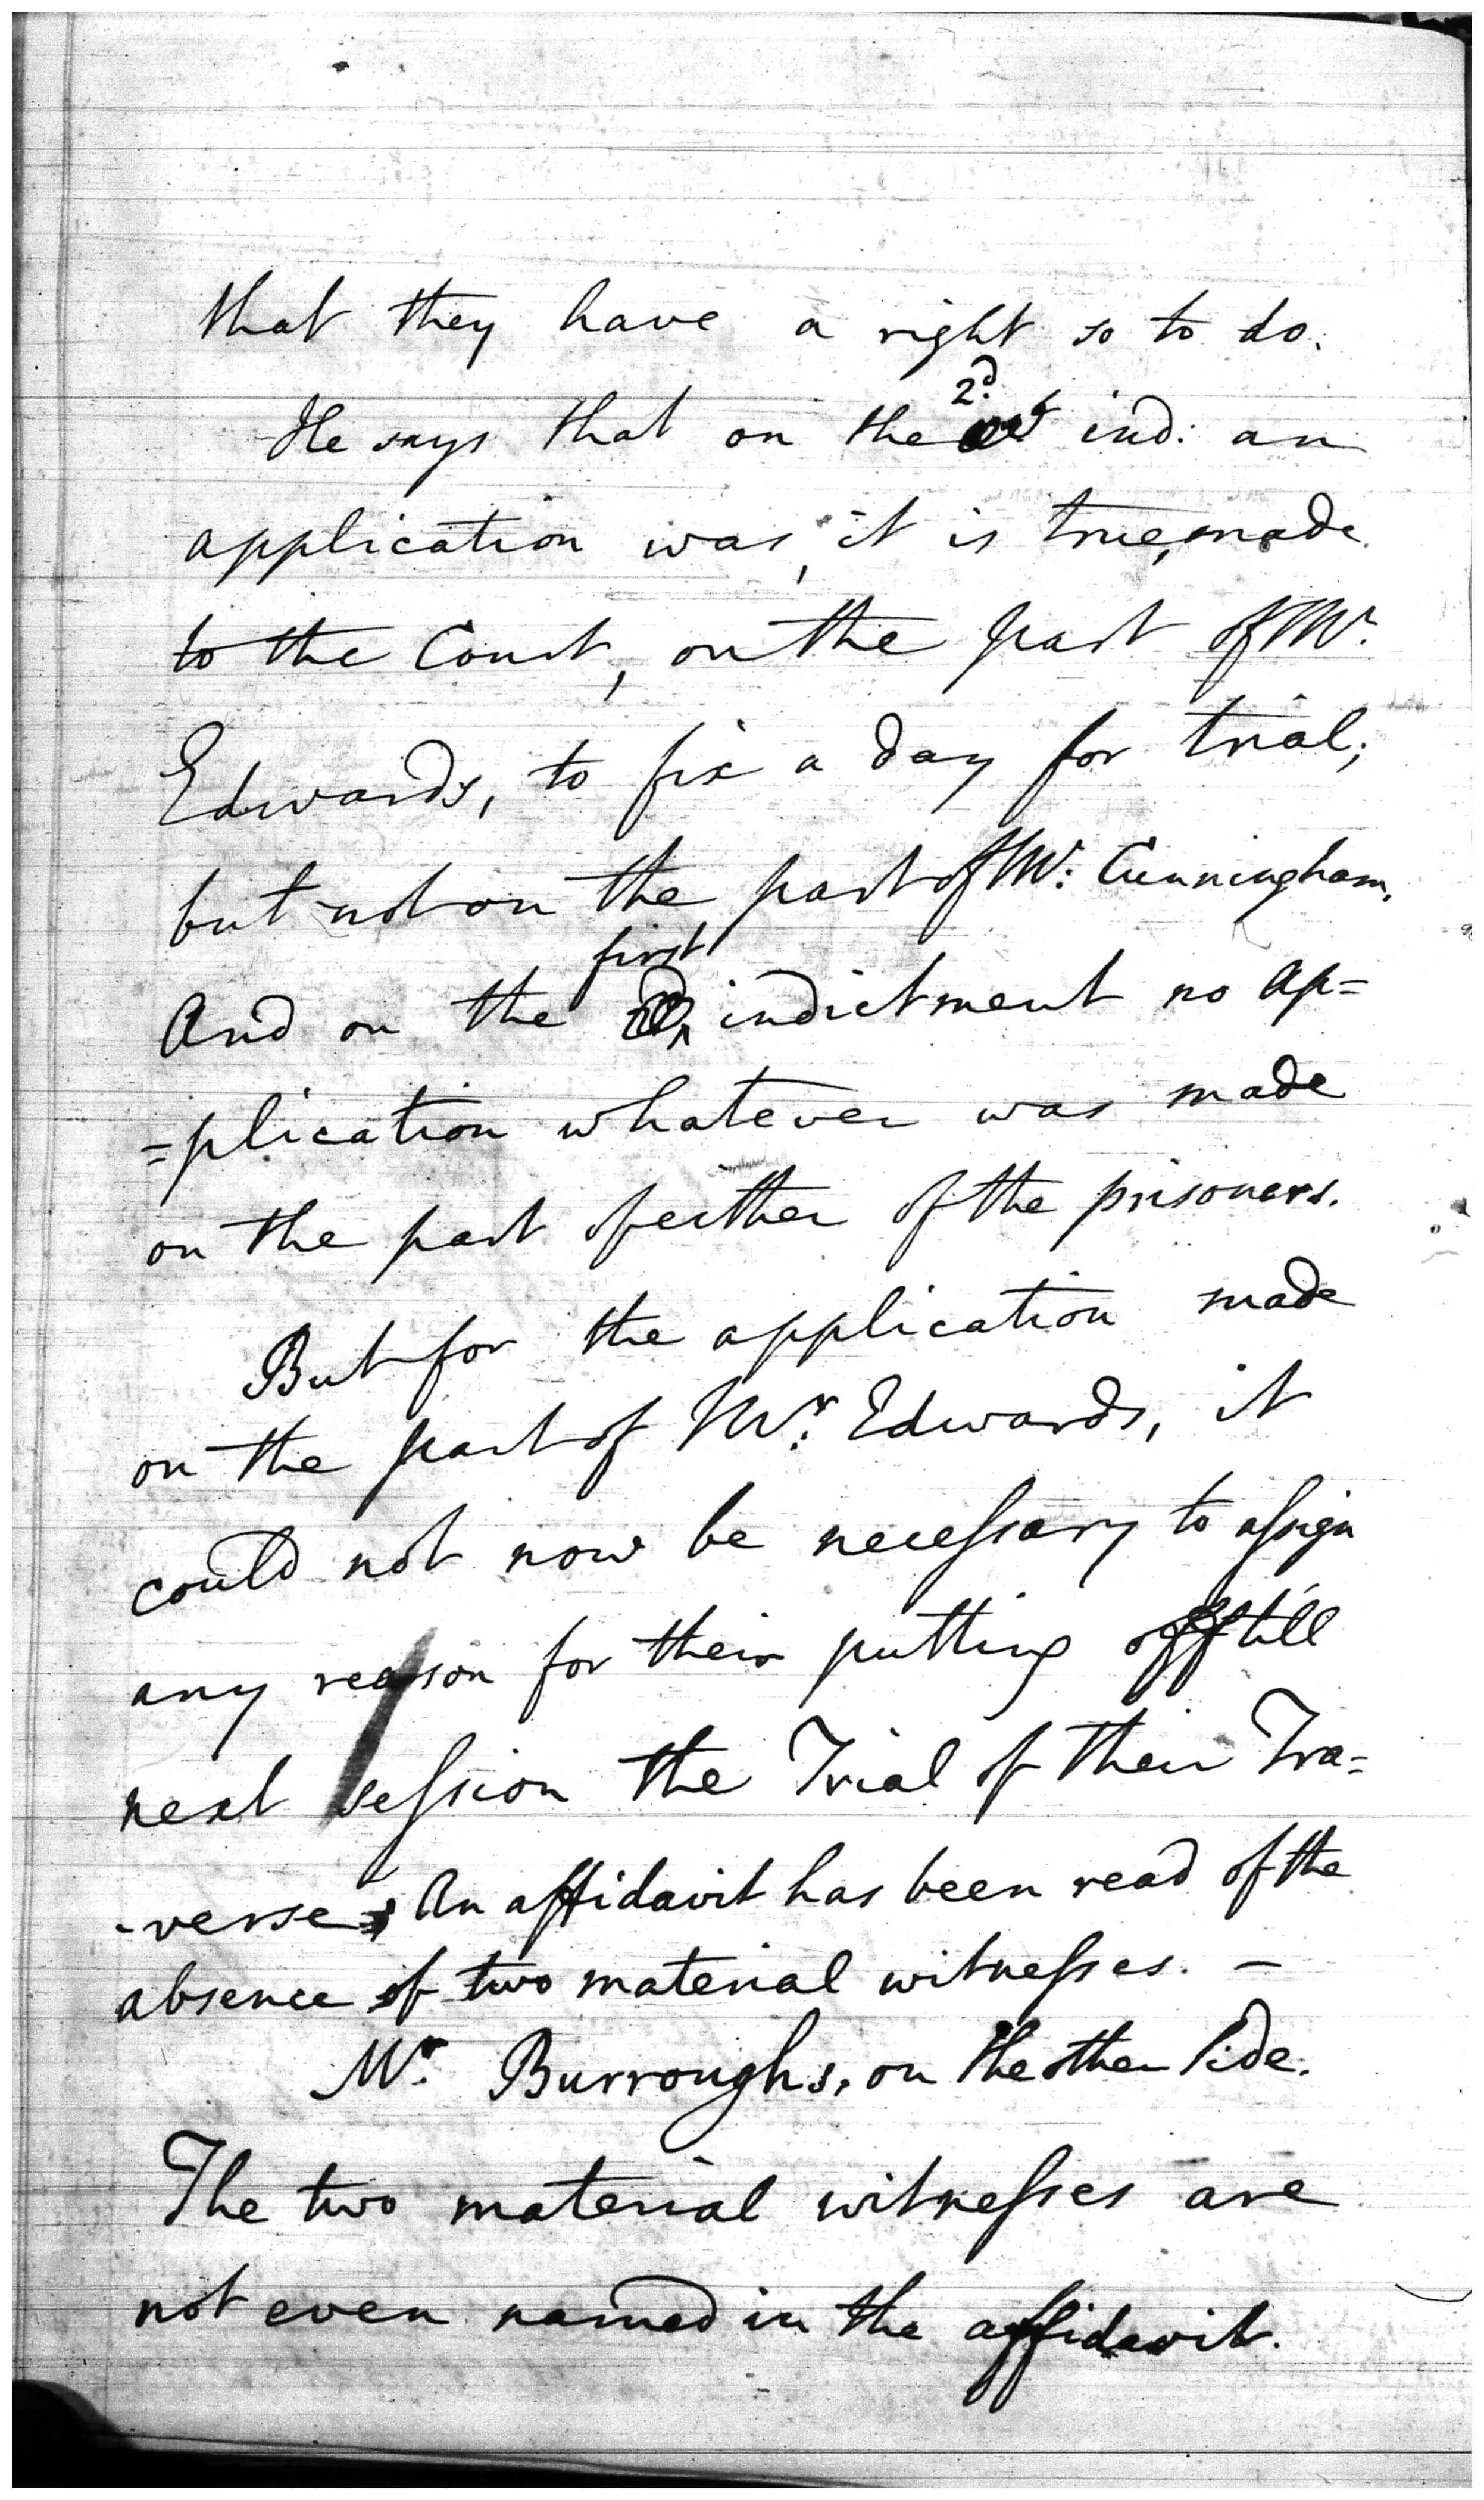 that they have a right so to do.
He says that on the 2d. ind: an
application was, it is true, made
to the Court, on the part of Mr.
Edwards, to fix a day for trial;
but not on the part of Mr: Cunningham.
And on the first indictment no ap=
=plication whatever was made
on the part of either of the prisoners.
But for the application made
on the part of Mr. Edwards, it
could not now be necessary to assign
any reason for their putting off till
next session the Trial of their Tra=
-verse; An affidavit has been read of the
absence of two material witnesses. —
Mr. Burroughs, on the other side.
The two material witnesses are
not even named in the affidavit.